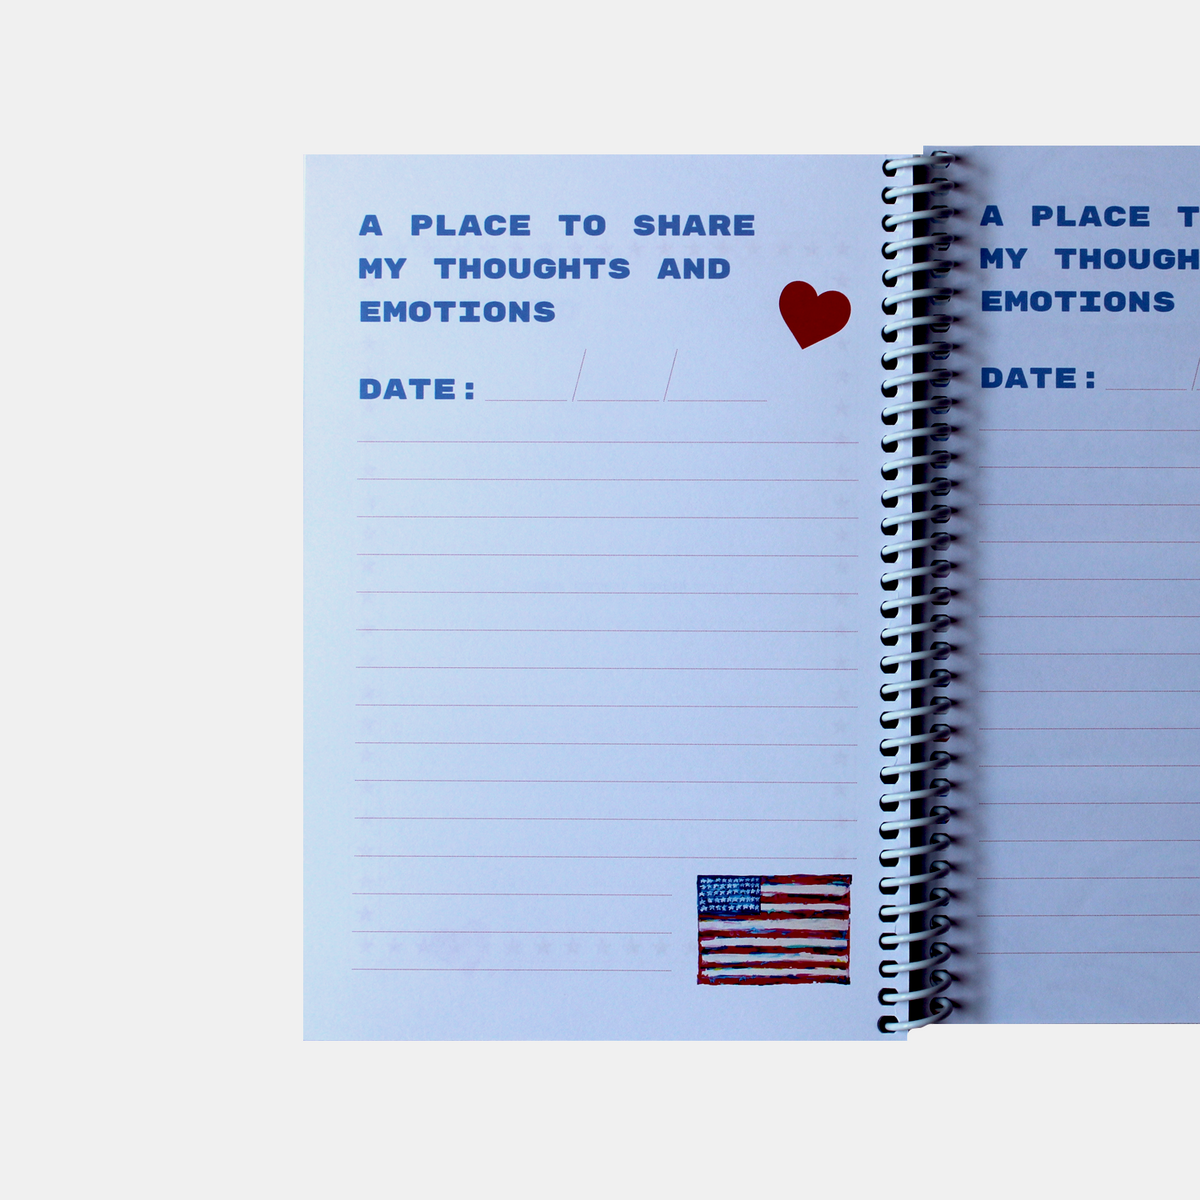 A PLACE TO SHARE
MY THOUGHTS AND
EMOTIONS
DATE: ____/____/____
A PLACE
MY
EMOTIONS
DATE: